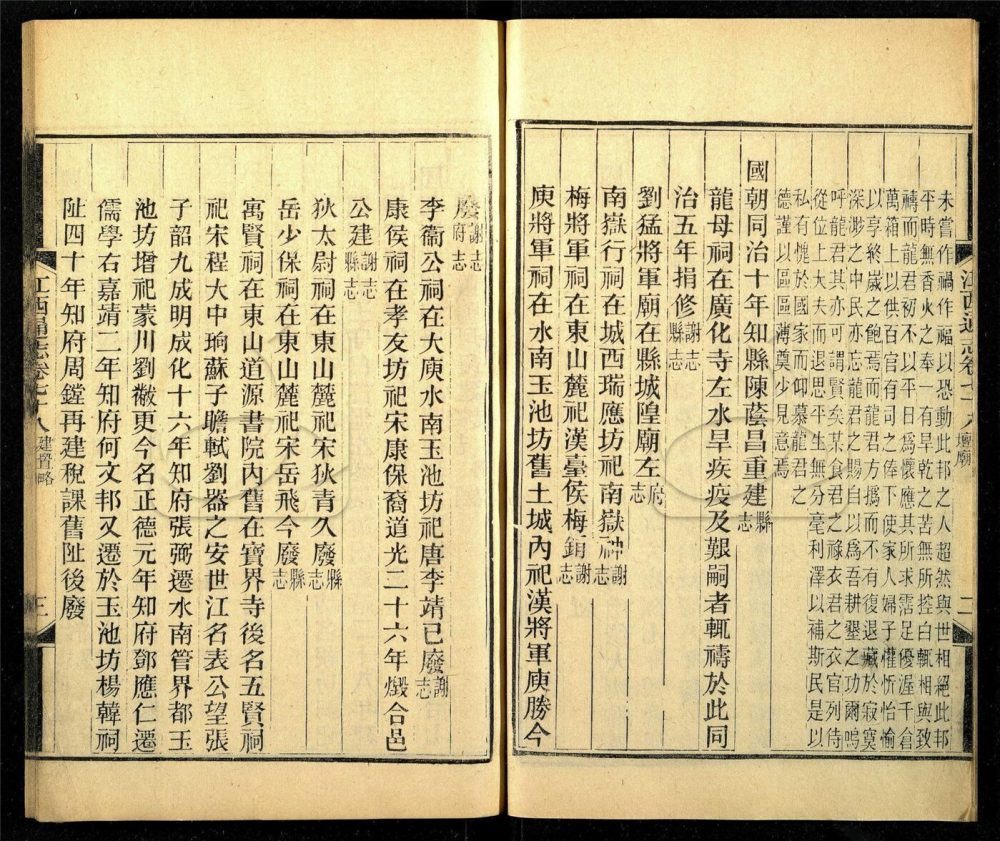 未嘗作禍作福以恐動此邦之人超然與世相絕此邦
平時無香火之奉一有旱乾之苦無所控白輒相與致
禱而龍君初不以平日爲懷應其所求霑足優渥千倉
萬箱上以供百官有司之俸下使家人婦子懽忻怡愉
以享終歲之飽焉而龍君方撝而不有復退藏於寂寞
深渺之中民亦忘龍君之賜自以爲吾耕墾之功爾嗚
呼龍君其亦可謂賢矣某食君之祿衣君之衣官列侍
從位上大夫而退思平生無分毫利澤以補斯民是以
私有愧於國家而仰慕龍君之
德謹以區區薄奠少見意焉
國朝同治十年知縣陳蔭昌重建縣志
龍母祠在廣化寺左水旱疾疫及艱嗣者輒禱於此同
治五年捐修謝志縣志
劉猛將軍廟在縣城隍廟左府志
南嶽行祠在城西瑞應坊祀南嶽神謝志
梅將軍祠在東山麓祀漢臺侯梅鋗縣志
庾將軍祠在水南玉池坊舊土城內祀漢將軍庾勝今
江西通志卷七十八 壇廟 二
廢謝志府志
李衞公祠在大庾水南玉池坊祀唐李靖已廢謝志
康侯祠在孝友坊祀宋康保裔道光二十六年燬合邑
公建謝志縣志
狄太尉祠在東山麓祀宋狄青久廢縣志
岳少保祠在東山麓祀宋岳飛今廢縣志
寓賢祠在東山道源書院內舊在寶界寺後名五賢祠
祀宋程大中珦蘇子瞻軾劉器之安世江名表公望張
子韶九成明成化十六年知府張弼遷水南管界都玉
池坊增祀蒙川劉黻更今名正德元年知府鄧應仁遷
儒學右嘉靖二年知府何文邦又遷於玉池坊楊韓祠
阯四十年知府周鏜再建稅課舊阯後廢
江西通志卷七十八 建置略 三